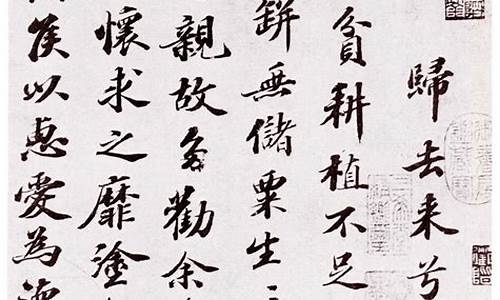 歸去来兮
貧耕植不足
缾無儲粟生
親故多勸余
懷求之靡塗
侯以惠愛為